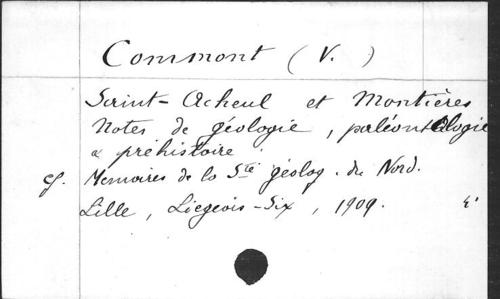 Commont (V. )
Saint-Acheul et Montières
Notes de géologie, paléontologie
& préhistoire.
cf. Memoires de la Sté géolog. du Nord.
Lille, Liegeois-Six, 1909.